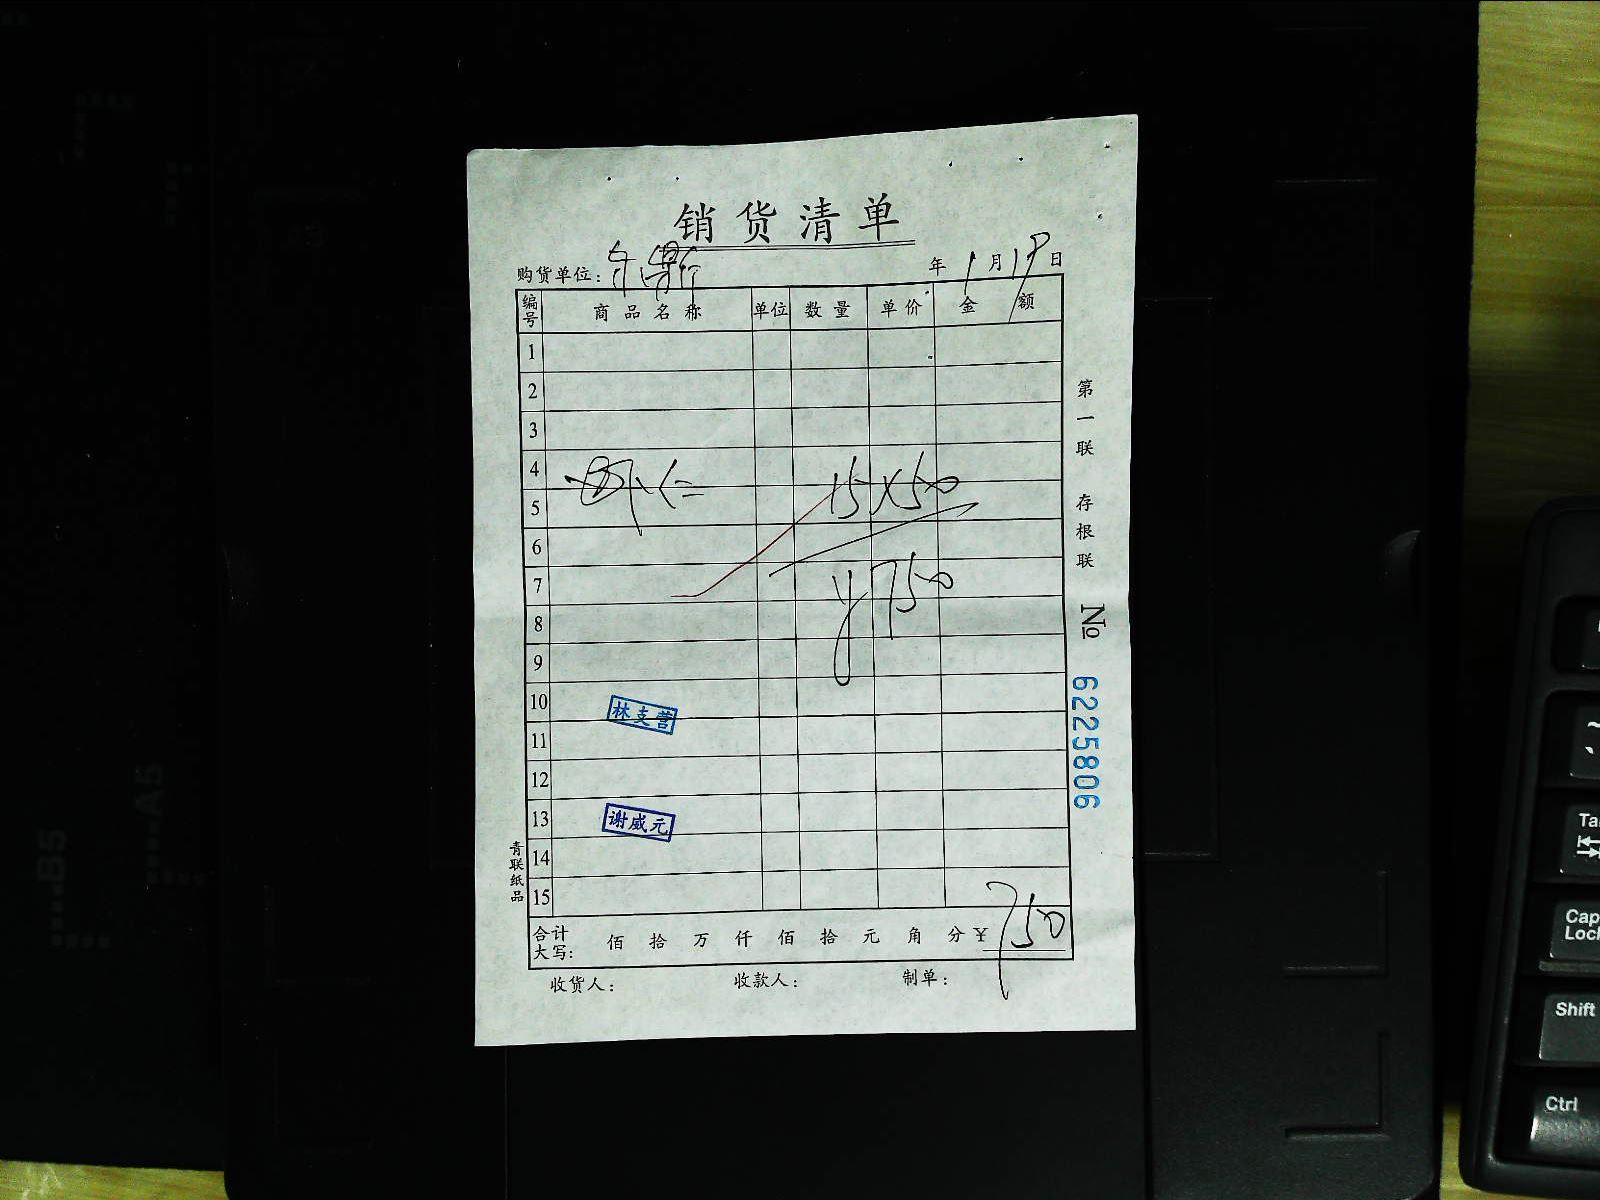 销货清单
购货单位:
年 1 月 19 日
编号 商品名称 单位 数量 单价 金额
1
2
3
4
15×50
5
6
7
¥750
8
9
10
林支营
11
12
13
谢威元
14
15
合计大写: 佰 拾 万 仟 佰 拾 元 角 分 ¥ 750
收货人: 收款人: 制单:
第一联 存根联
№ 6225806
青联纸品
B5
A5
Caps Lock
Shift
Ctrl